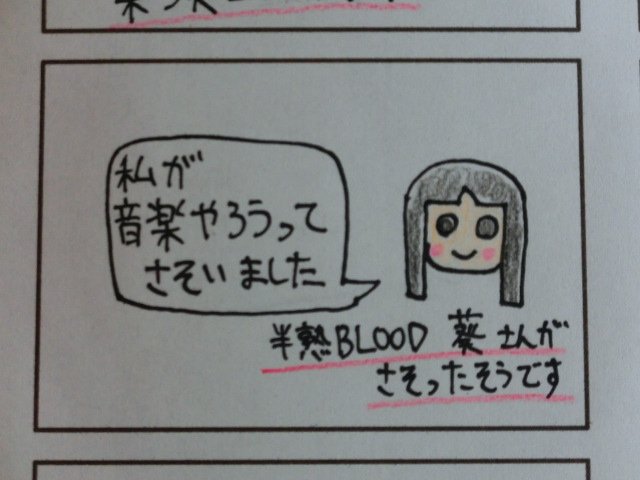 私が
音楽やろうって
さそいました
半熟BLOOD 葵さんが
さそったそうです